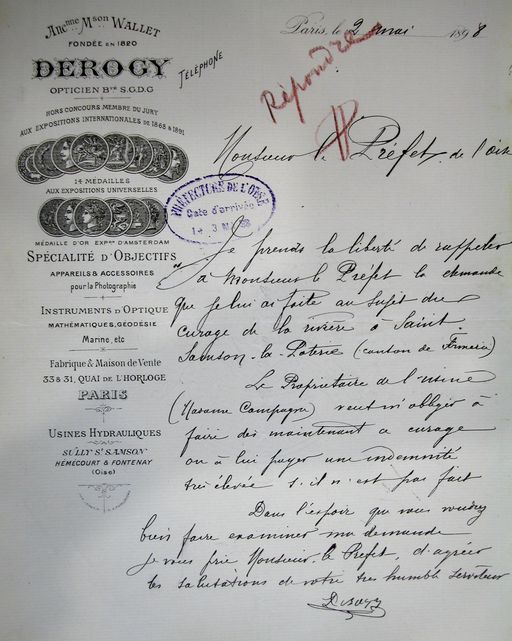 Anc.nne M.son WALLET
FONDÉE EN 1820
DEROGY
OPTICIEN Bté S.G.D.G
TÉLÉPHONE
HORS CONCOURS MEMBRE DU JURY
AUX EXPOSITIONS INTERNATIONALES DE 1868 & 1891
14 MÉDAILLES
AUX EXPOSITIONS UNIVERSELLES
MÉDAILLE D'OR EXPon D'AMSTERDAM
SPÉCIALITÉ D'OBJECTIFS
APPAREILS & ACCESSOIRES
pour la Photographie
INSTRUMENTS D'OPTIQUE
MATHÉMATIQUES, GÉODÉSIE
Marine, etc
Fabrique & Maison de Vente
33 & 31, QUAI DE L'HORLOGE
PARIS
USINES HYDRAULIQUES
SULLY St SAMSON
HÉMÉCOURT & FONTENAY
(Oise)
Paris, le 2 mai 1898
Répondre
PRÉFECTURE DE L'OISE
Date d'arrivée
Monsieur le Préfet de l'Oise
Je prends la liberté de rappeler
à Monsieur le Prefet la demande
que je lui ai faite au sujet du
curage de la rivière à Saint
Samson-la-Poterie (canton de Formerie)
Le Propriétaire de l'usine
(Madame Campagne) veut m'obliger à
faire des maintenant ce curage
ou à lui payer une indemnité
tres élevée s'il n'est pas fait
Dans l'espoir que vous voudrez
bien faire examiner ma demande
je vous prie, Monsieur le Prefet, d'agréer
les salutations de votre tres humble serviteur
Derogy